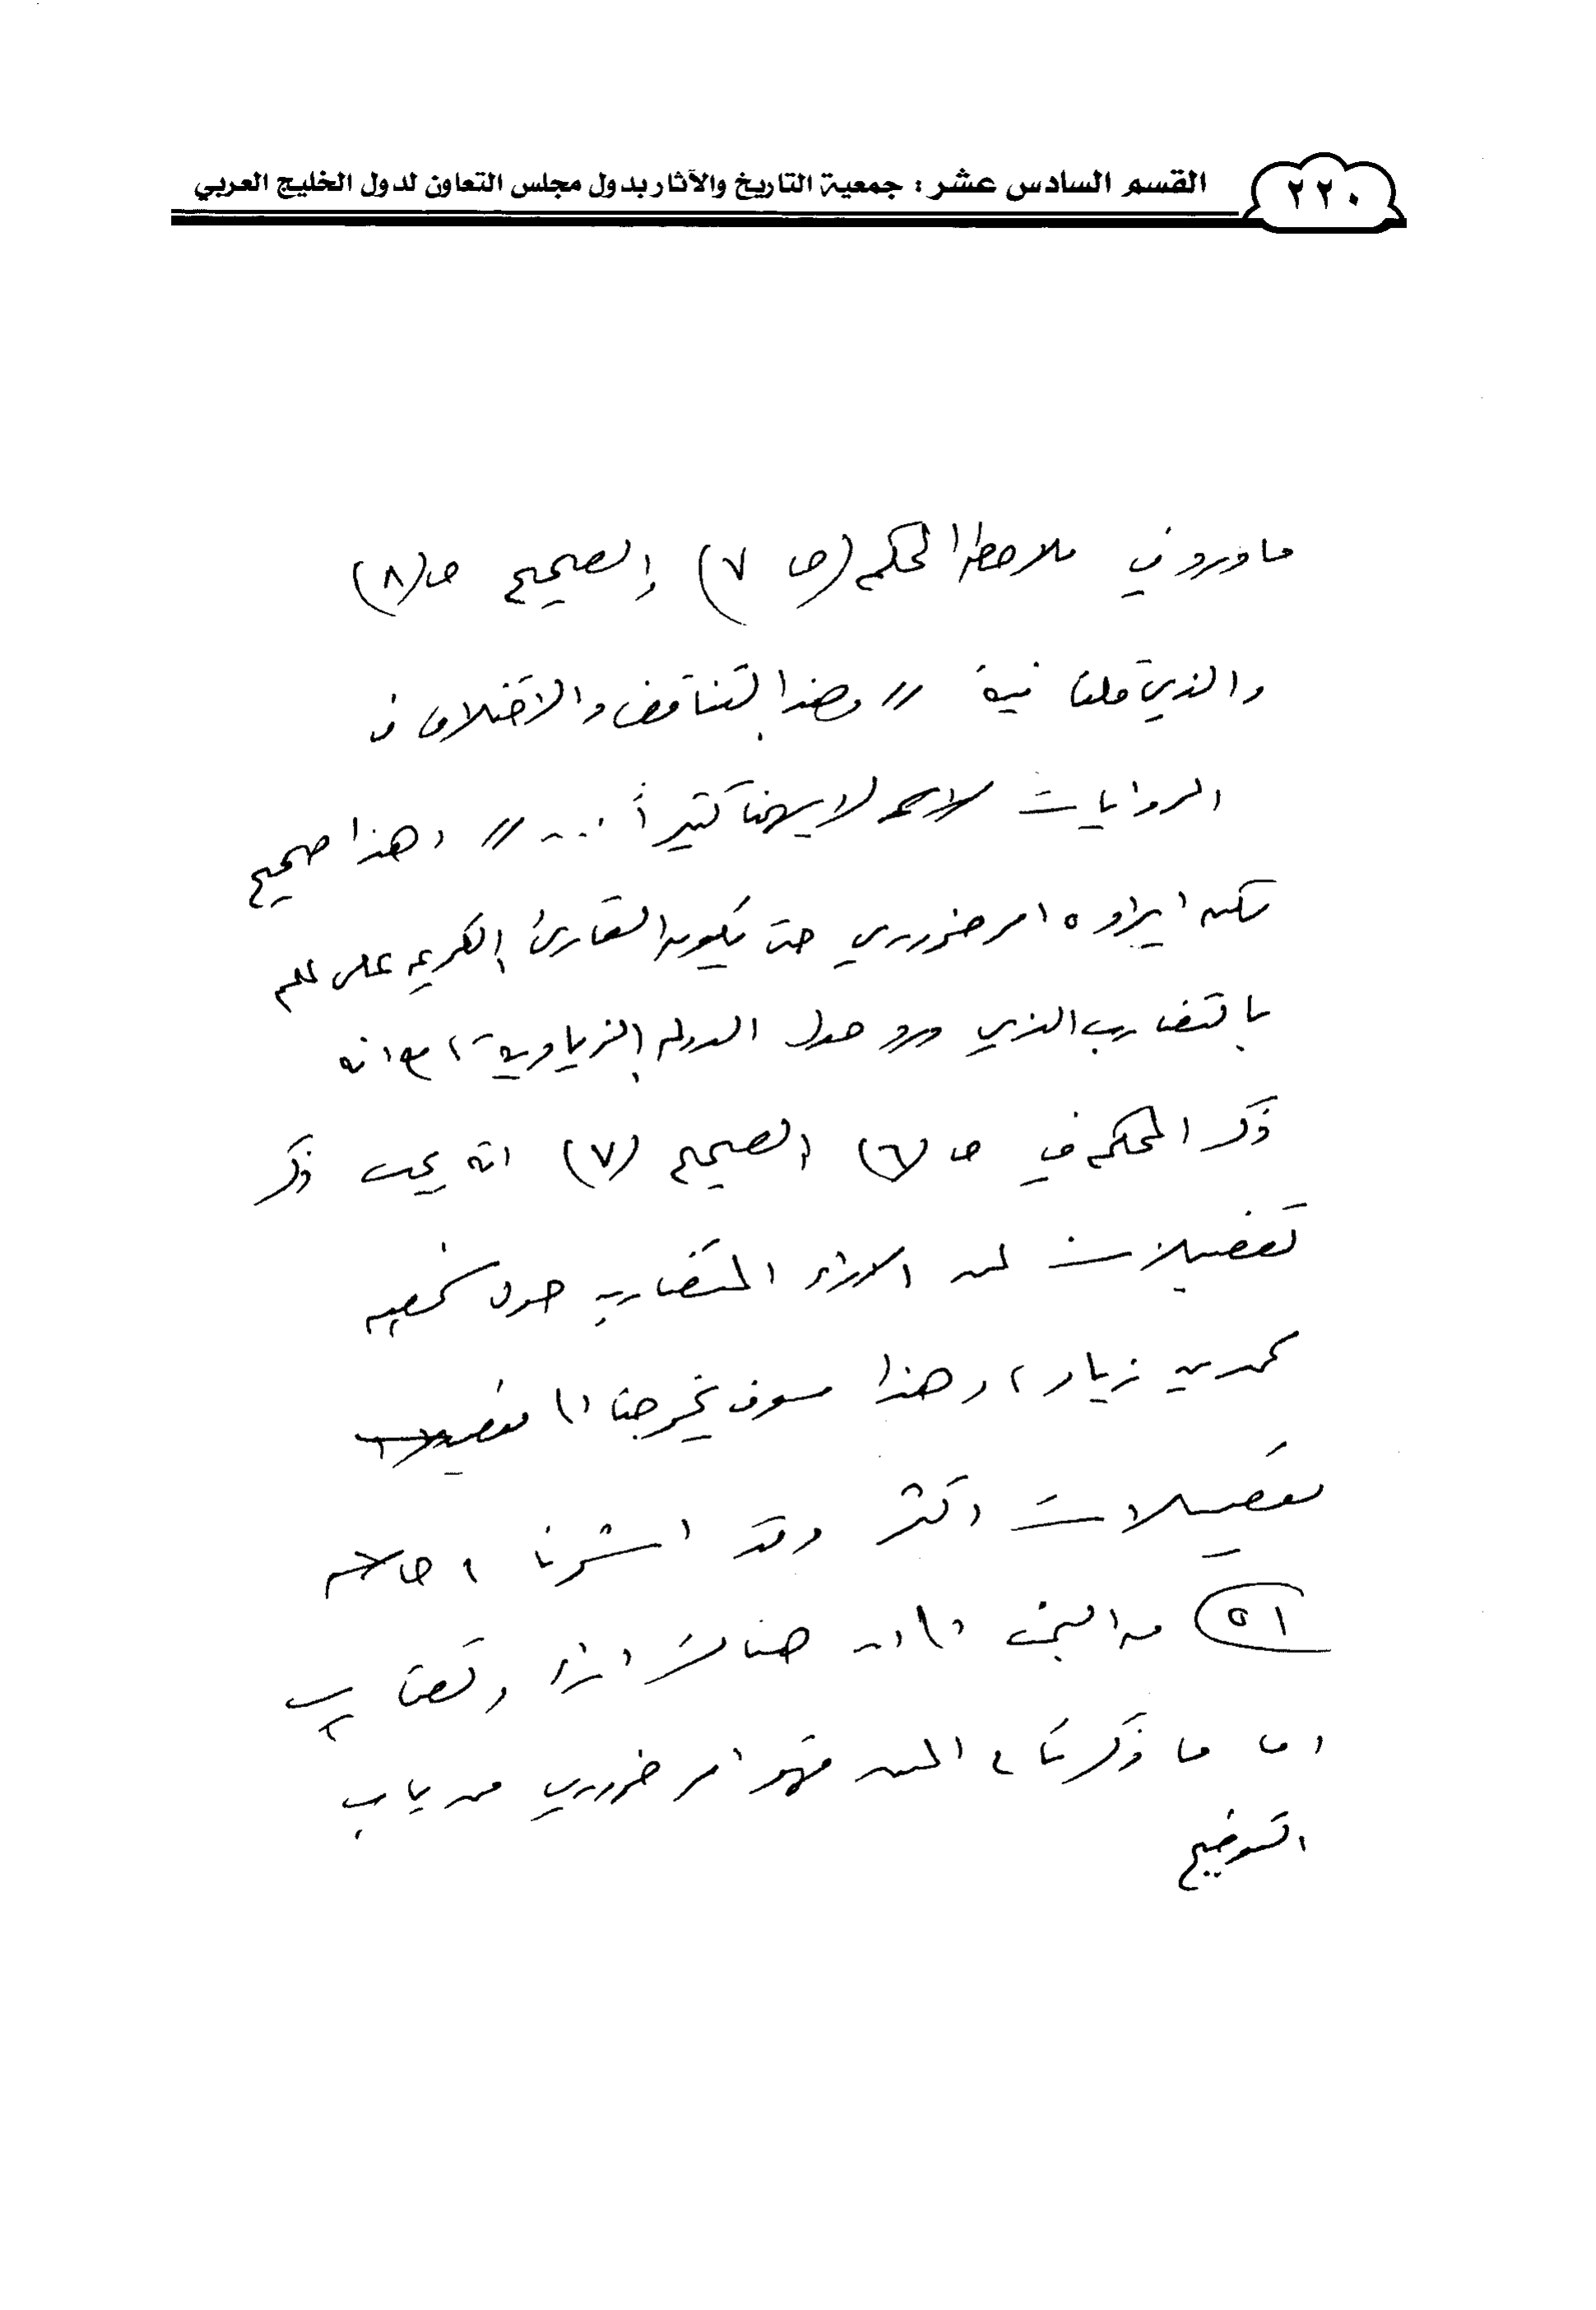 ٢٢٠
القسم السادس عشر : جمعية التاريخ والآثار بدول مجلس التعاون لدول الخليج العربي
ما ورد في ملاحظه المحكم (ص ٧) والصحيح ص (٨)
والذي قلنا فيه " وهذا التناقض والاختلاف في
الروايات لا يهمنا كثيراً ... " وهذا صحيح
لكن ايراده امر ضروري حتى يكون القارئ الكريم على علم
بالتضارب الذي ورد حول الدوله الزيادية، مع انه
ذكر المحكم في ص (٦) والصحيح (٧) انه يجب ذكر
تفصيلات عن الاراء المتضاربه حول شخصيه
محمد بن زياد، وهذا سوف يخرجنا الى
تفصيلات اكثر وقد اشرنا
(٥١) من البحث الى ان هناك اراء
اما ما ذكرناه المتن فهو امر ضروري من باب
التوضيح